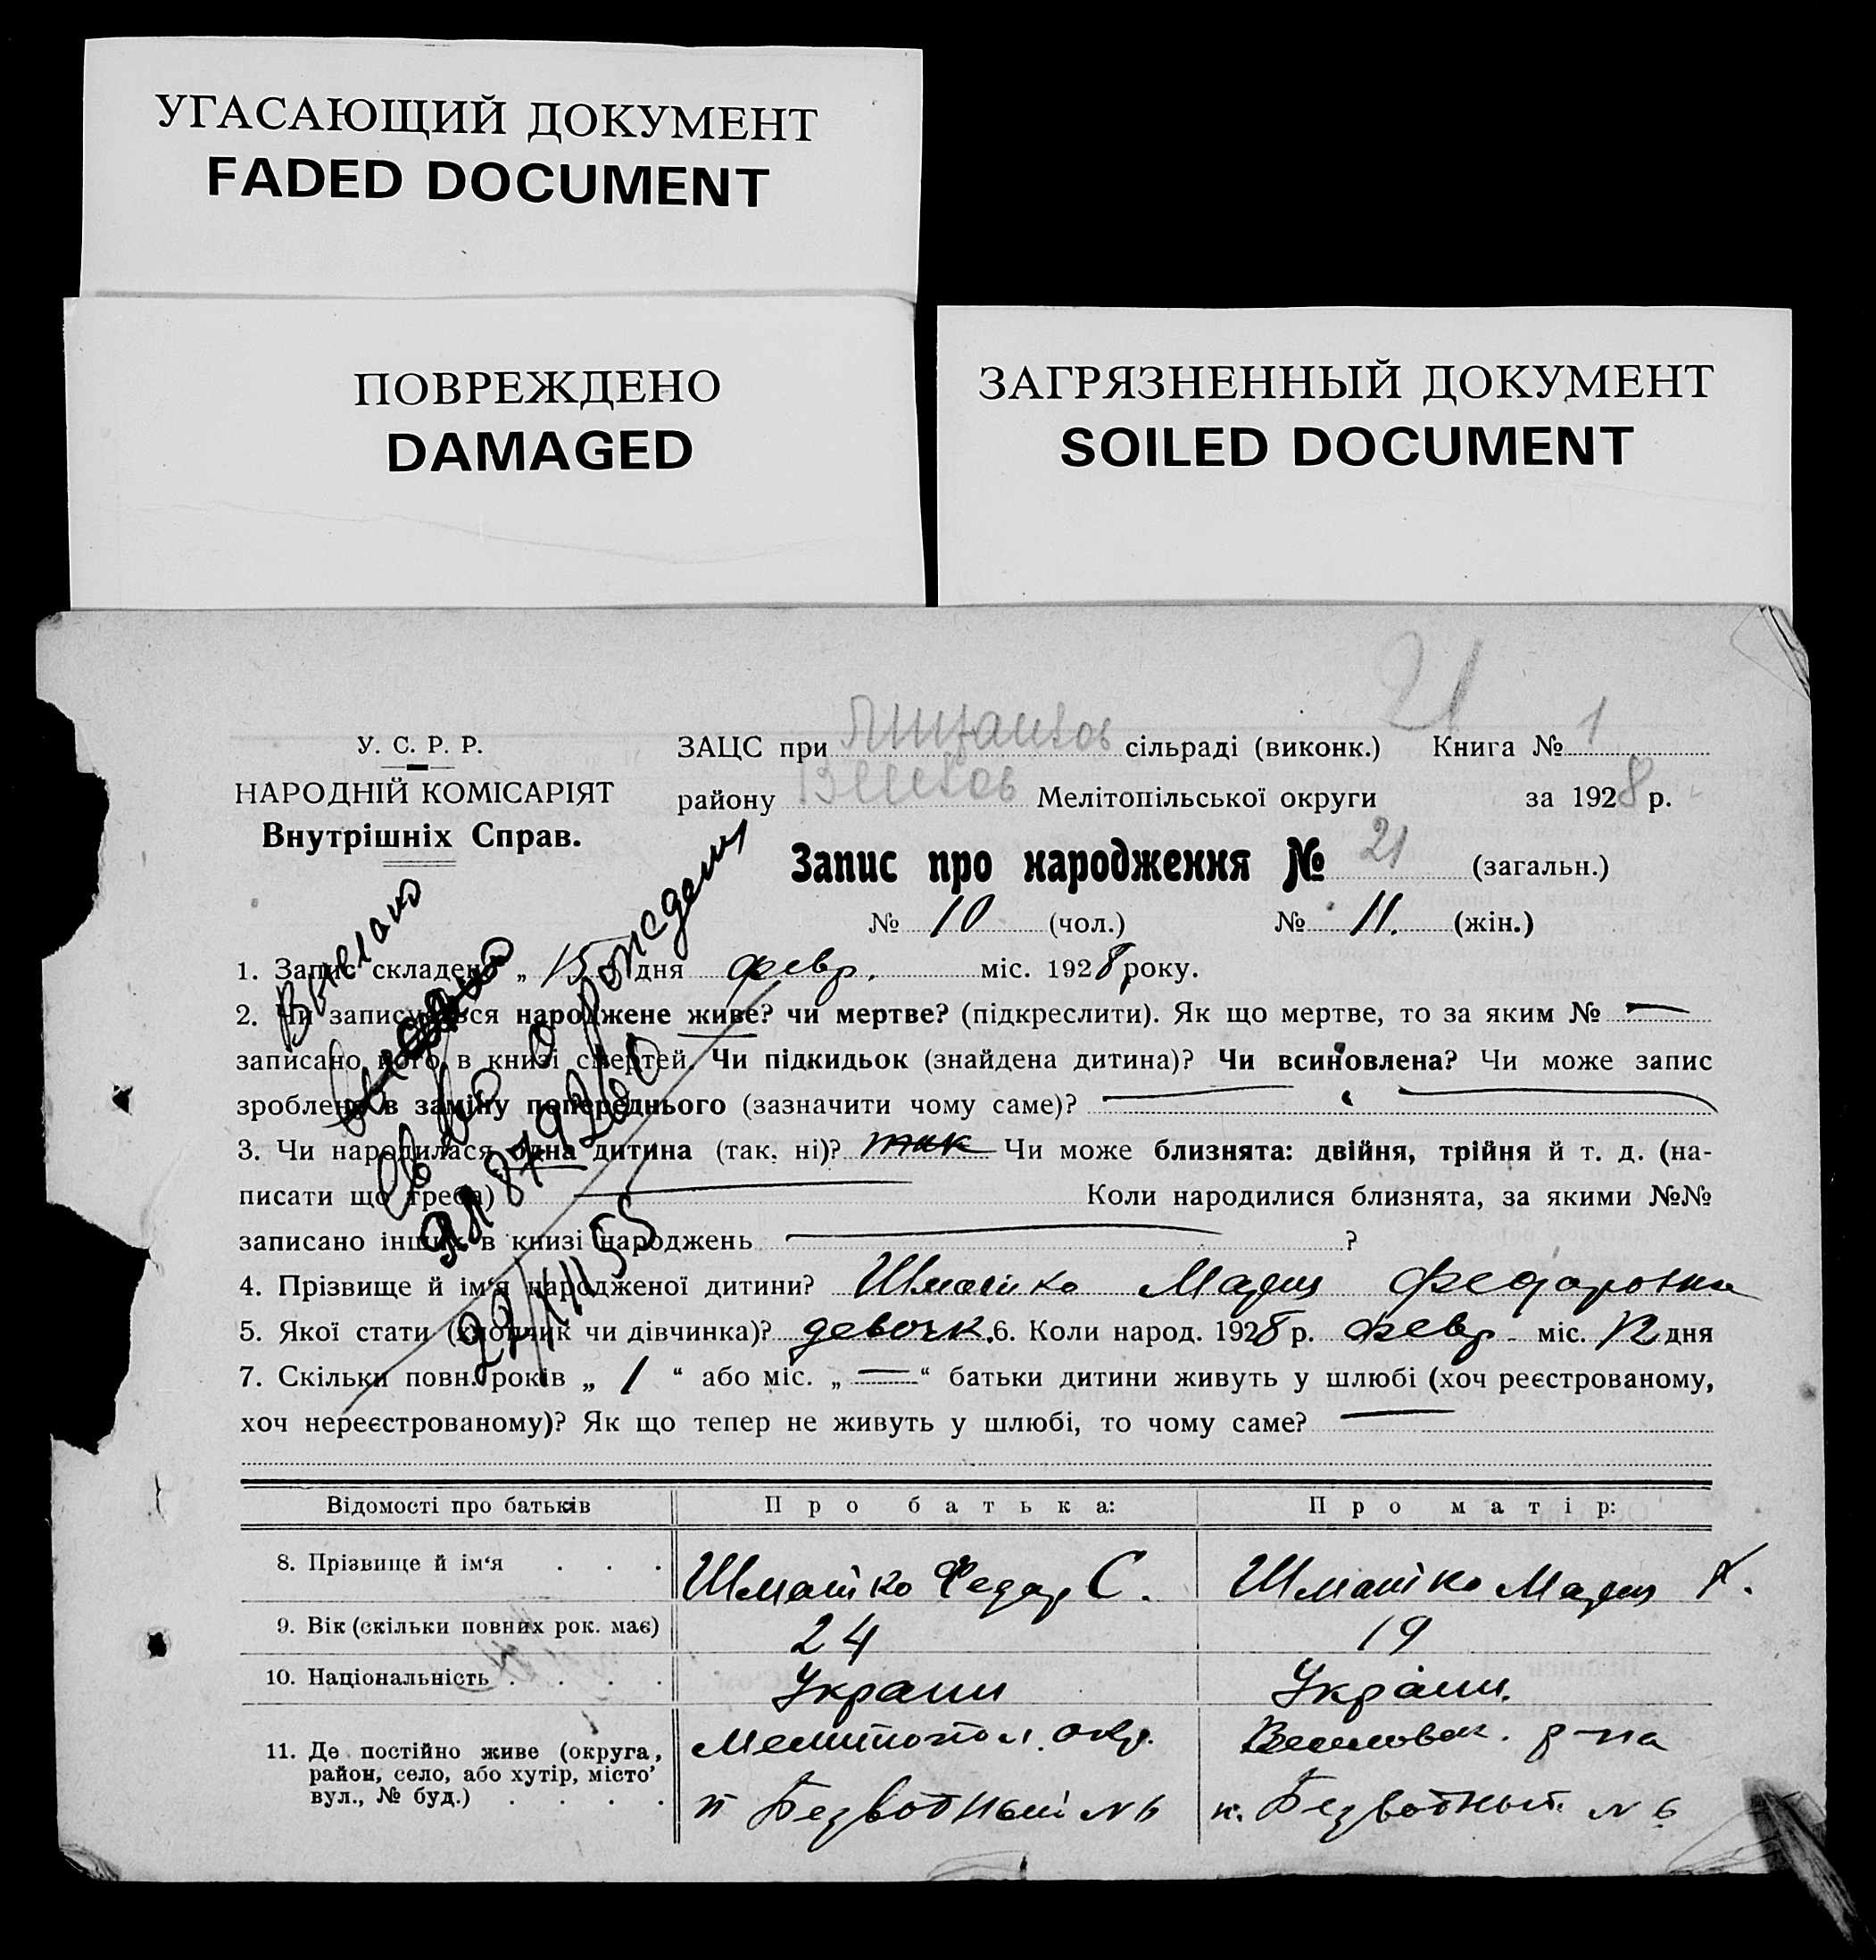 УГАСАЮЩИЙ ДОКУМЕНТ
FADED DOCUMENT
ПОВРЕЖДЕНО
DAMAGED
ЗАГРЯЗНЕННЫЙ ДОКУМЕНТ
SOILED DOCUMENT
21
У. С. Р. Р.
НАРОДНІЙ КОМІСАРІЯТ
Внутрішніх Справ.
ЗАЦС при сільраді (виконк.) Книга № 1
району Мелітопільської округи за 1928 р.
Запис про народження № 21 (загальн.)
№ 10 (чол.) № 11. (жін.)
1. Запис складено „ 15 " дня февр. міс. 1928 року.
2. Чи записується народжене живе? чи мертве? (підкреслити). Як що мертве, то за яким № —
записано його в книзі смертей. Чи підкидьок (знайдена дитина)? Чи всиновлена? Чи може запис
зроблено в заміну попереднього (зазначити чому саме)?
3. Чи народилася одна дитина (так, ні)? так Чи може близнята: двійня, трійня й т. д. (на-
писати що треба) — Коли народилися близнята, за якими №№
записано інших в книзі народжень — ?
4. Прізвище й ім'я народженої дитини? Шматко Мария Федоровна
5. Якої стати (хлопчик чи дівчинка)? девочк. 6. Коли народ. 1928 р. февр. міс. 12 дня
7. Скільки повн. років „ 1 “ або міс. „ — “ батьки дитини живуть у шлюбі (хоч реєстрованому,
хоч нереєстрованому)? Як що тепер не живуть у шлюбі, то чому саме? —
Выслано
свид о рождении
22/III 55
Відомості про батьків Про батька: Про матір:
8. Прізвище й ім‘я . . . Шматко Федор С. Шматко Мария
9. Вік (скільки повних рок. має) 24 19
10. Національність . . . . Украин Украин.
11. Де постійно живе (округа, район, село, або хутір, місто’ вул., № буд.) . . . .
Мелитопол. окр. Веселовск. р-на
п Безводный № 6 п. Безводный № 6